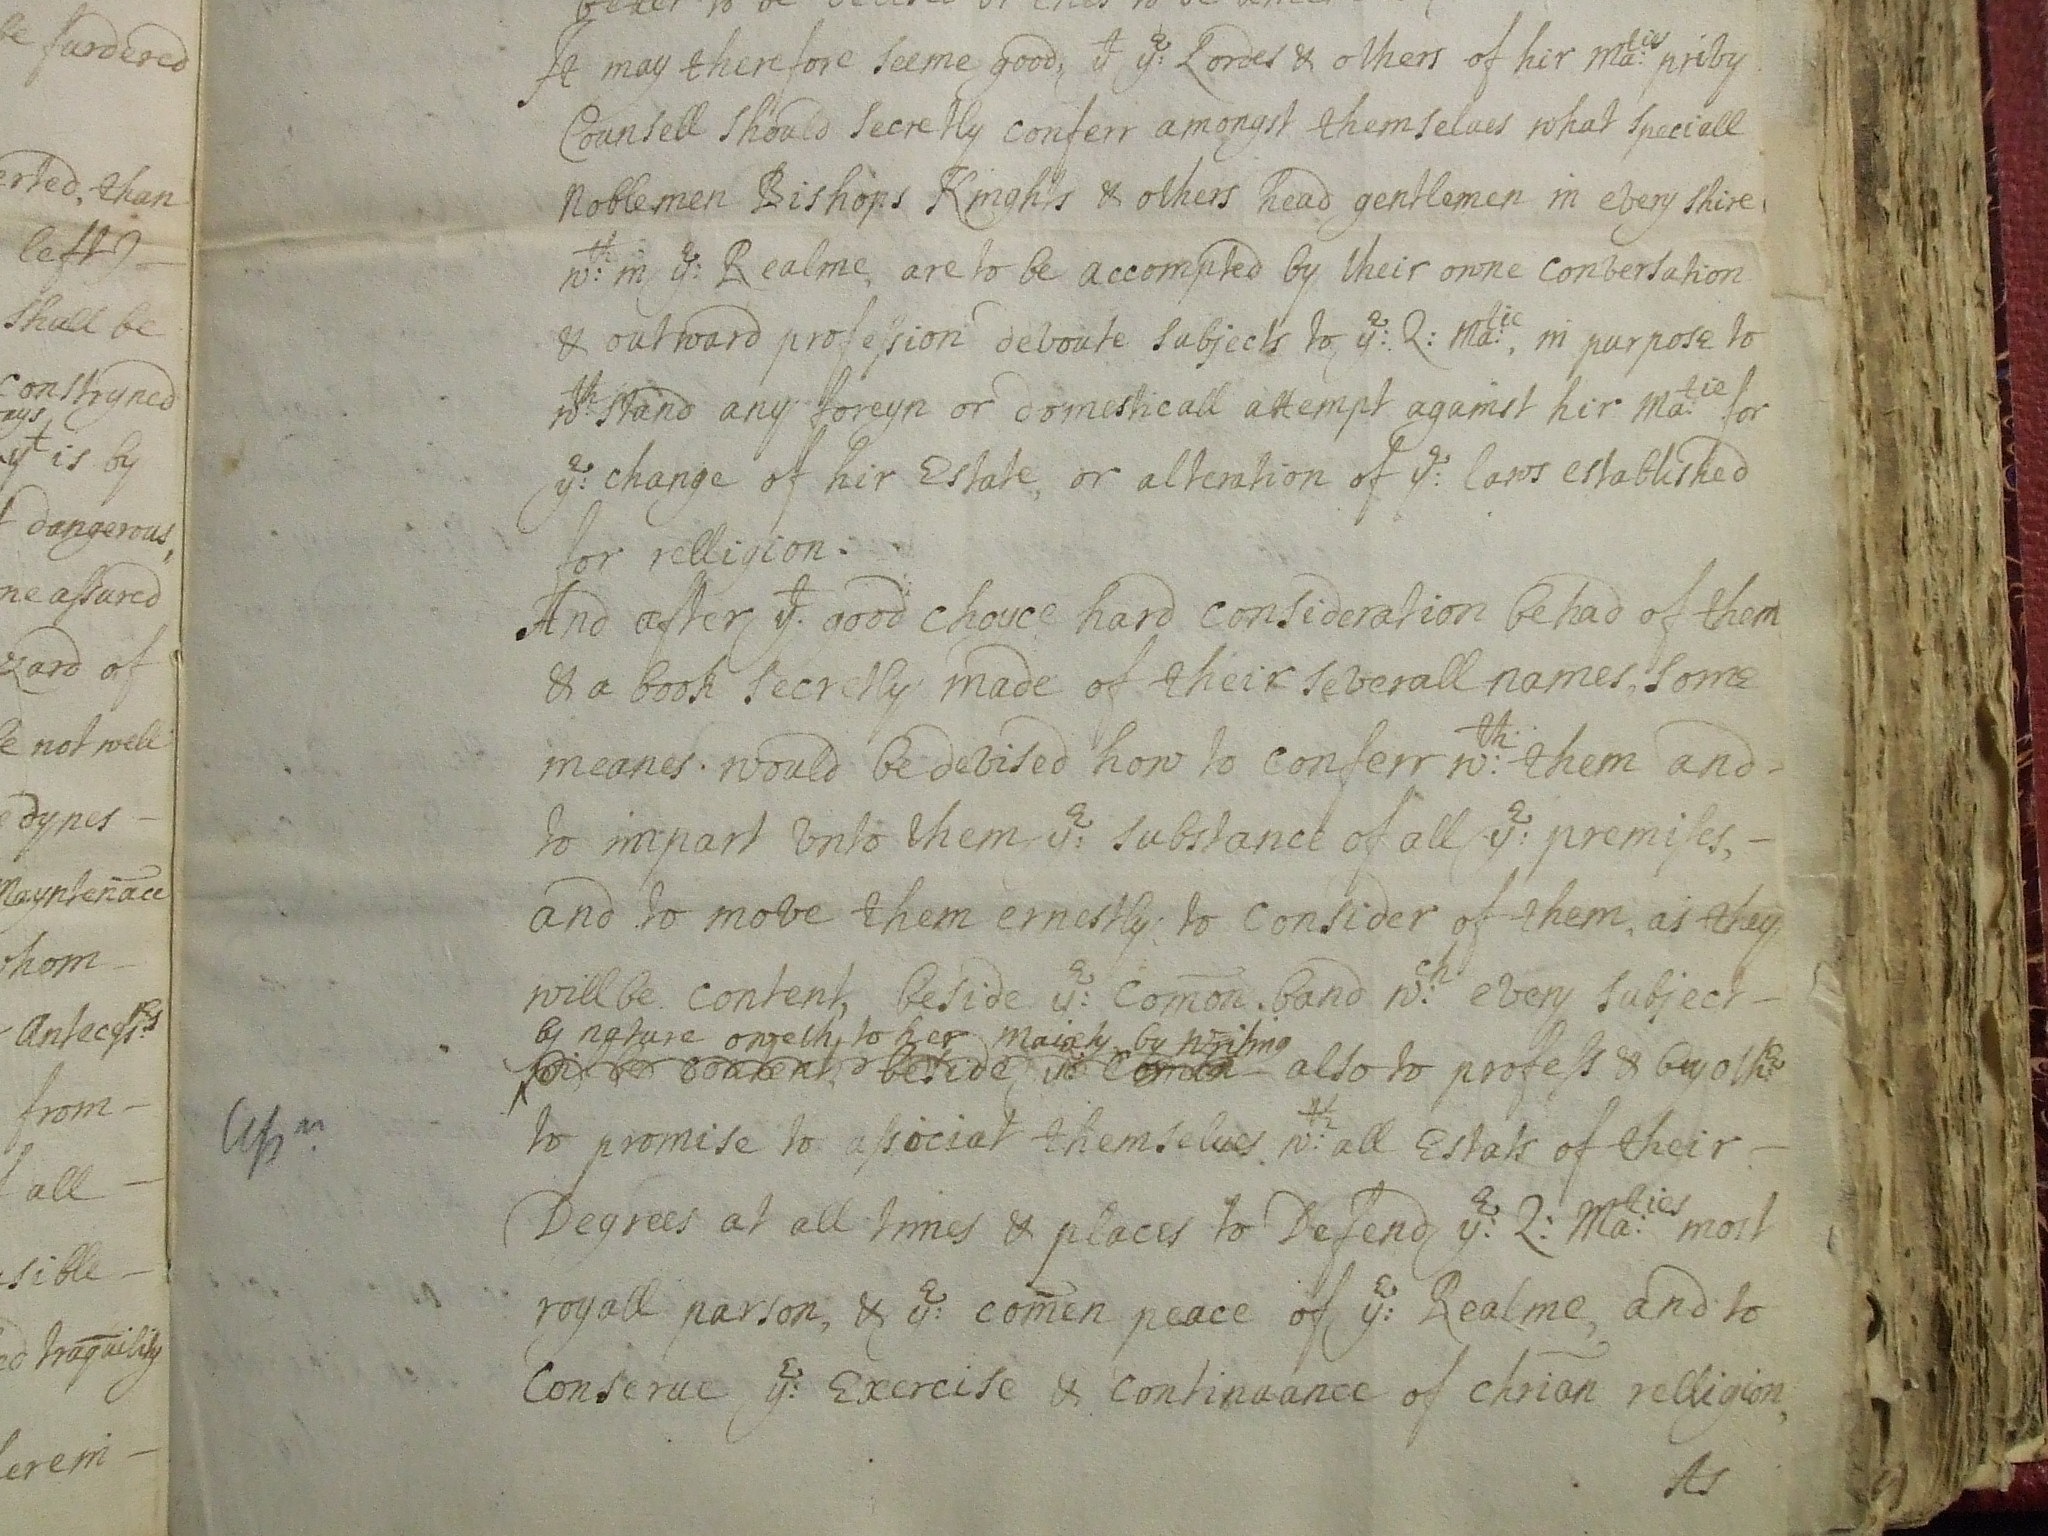 be furdered
erted, than
left)
shall be
constryned
ways
yt is by
dangerous,
ne assured
zard of
not well
dypes
Mayntenāce
whom
Antecessrs
from
all
sible
trāquility
It may therefore seeme good, yt ye: Lordes & others of hir Ma:ties privy
Counsell should secretly conferr amongst themselues what speciall
Noblemen Bishops Kinghts & others head gentlemen in every shire
wth: in ye: Realme, are to be accompted by their owne conversation
& outward profession devoute subjects to ye: Q: Ma:tie, in purpose to
wth: stand any foreyn or domesticall attempt against hir Ma:tie for
ye: change of hir Estate, or alteration of ye: laws established
for relligion.
And after yt. good choyce hard consideration be had of them
& a book secretly made of their severall names, some
meanes would be devised how to conferr wth: them and
to impart vnto them ye: substance of all ye: premises,
and to move them ernestly to consider of them, as they
will be content, beside ye: comōn band wch: every subject
by nature oweth to her Maiesty by writing
will be content, beside ye: Comon also to profess & by othe
to promise to associat themselues wth: all Estats of their
Degrees at all times & places to Defend ye: Q: Ma:ties most
royall parson, & ye: comēn peace of ye: Realme, and to
Assn:
Conserue ye: Exercise & continuance of chrian̄ relligion,
As